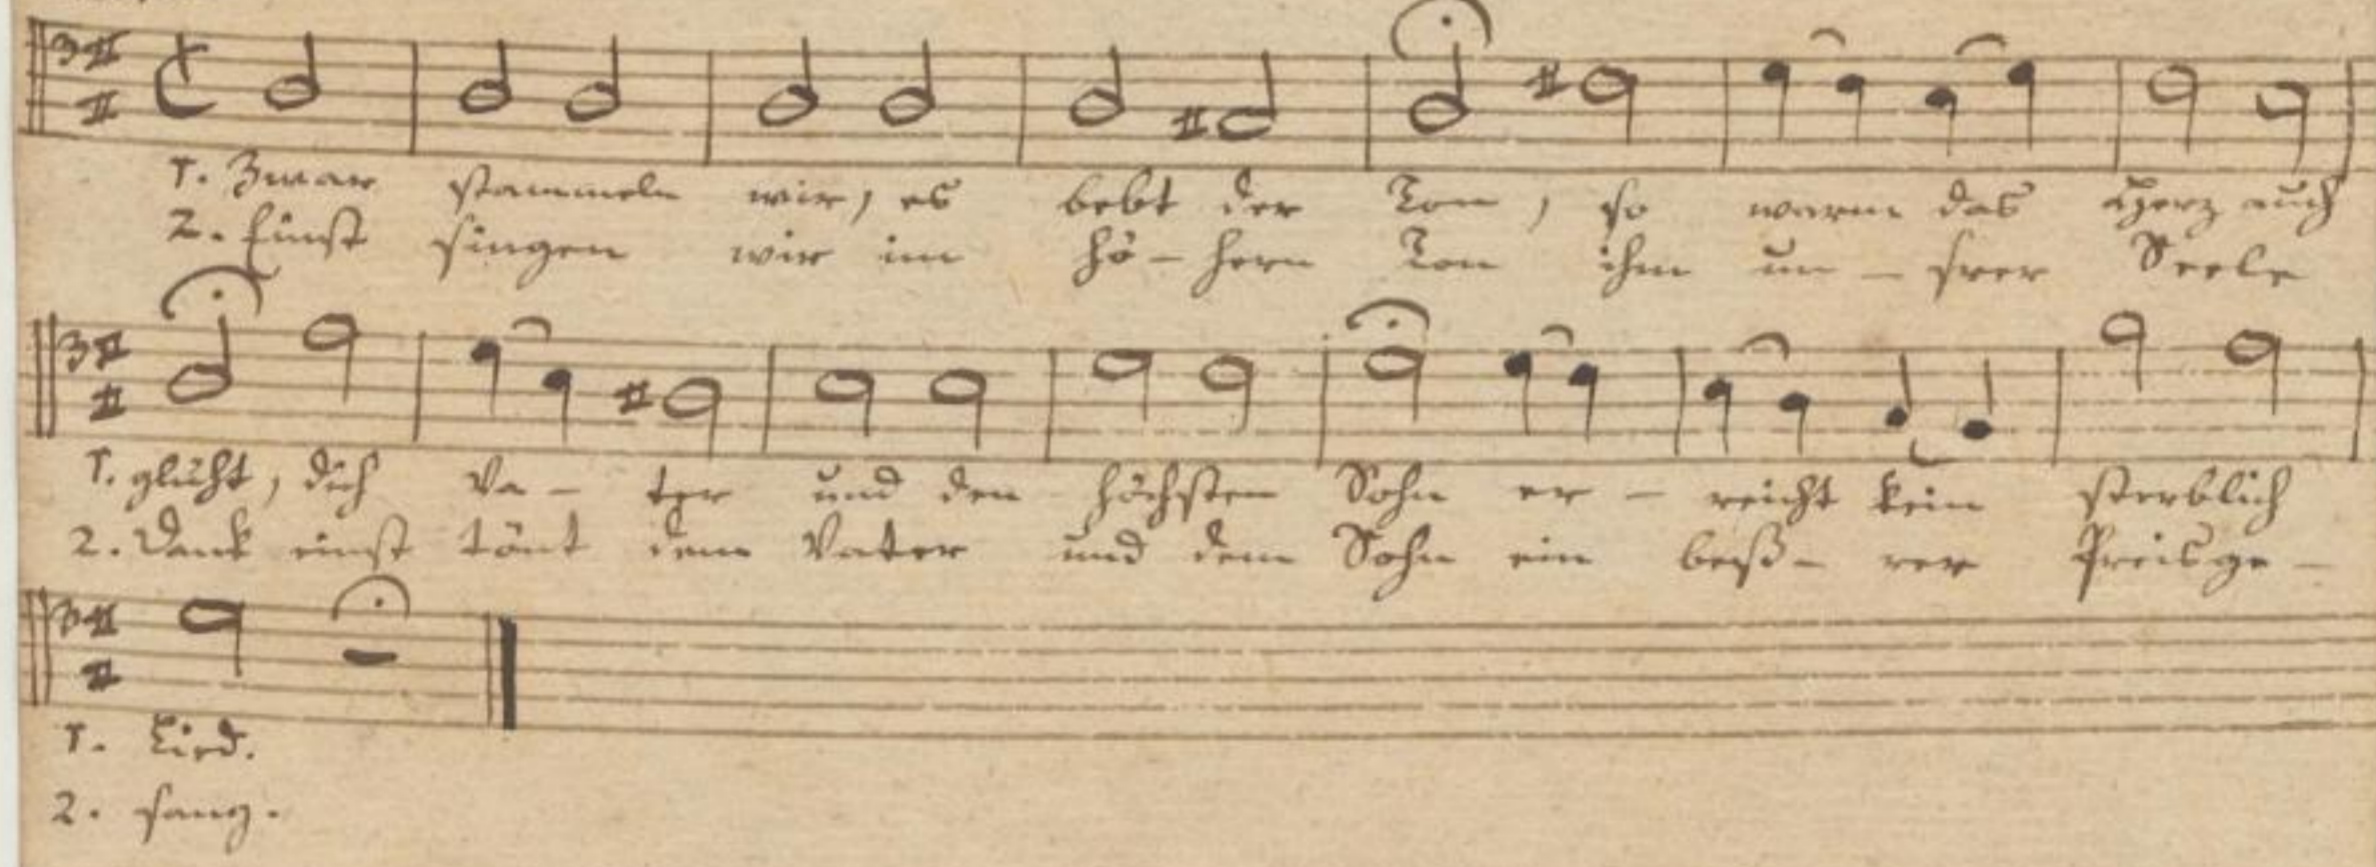 1. Zwar stammeln wir, es bebt der Ton, so warm das Herz auch
2. Einst singen wir im hö- hern Ton ihm un- srer Seele
1. glüht, dich Va- ter und den höchsten Sohn er- reicht kein sterblich
2. Dank einst tönt dem Vater und dem Sohn ein beß- rer Preisge-
1. Lied.
2. sang.